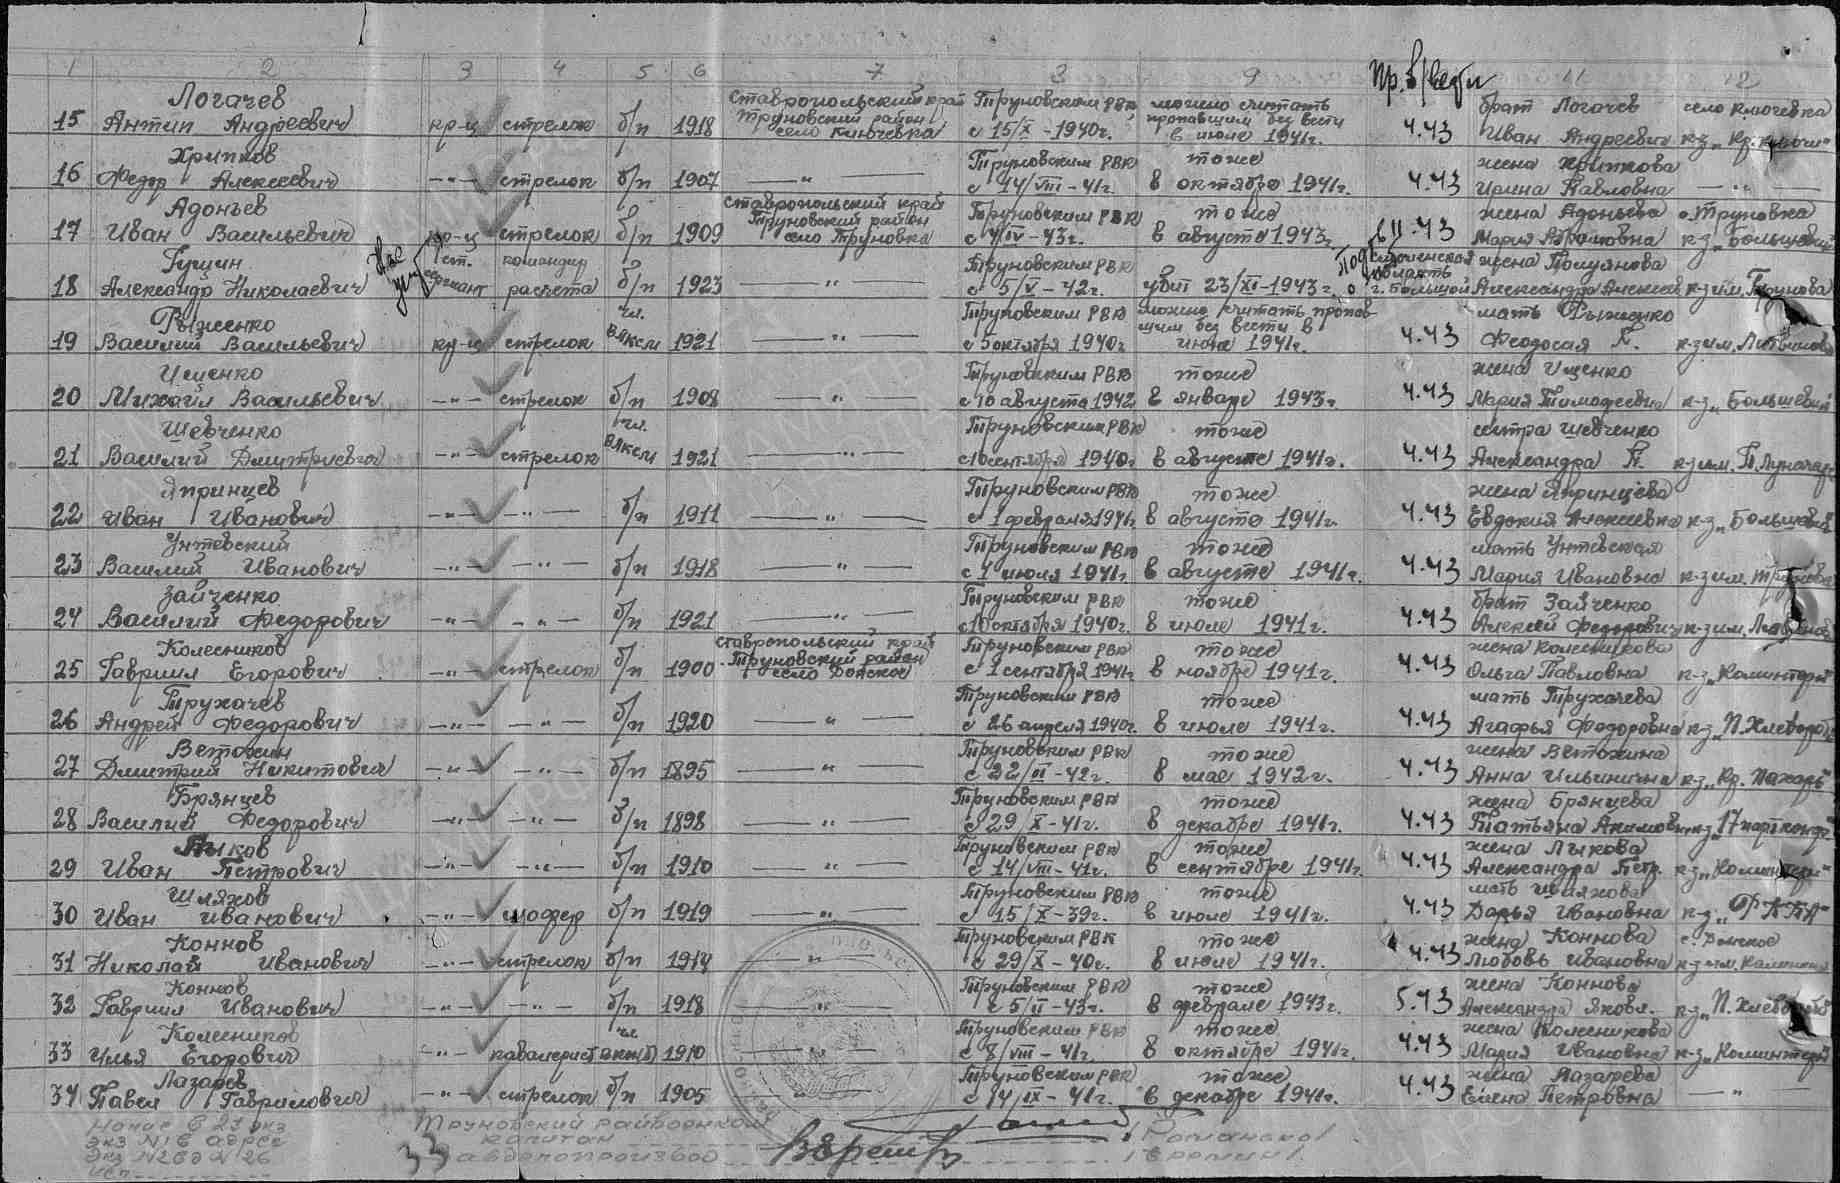 1 2 3 4 5 6 7 8 9 Пр. б/вести 11 12
Логачев Ставропольский край Труновским РВК можно считать брат Логачев село Ключевка
15 Антип Андреевич кр-ц стрелок б/п 1918 Труновский район село Ключевка с 15/X - 1940г. пропавшим без вести в июле 1941г. 4.43 Иван Андреевич к-з „Кр.
Хрипков Труновским РВК тоже жена Хрипкова
16 Федор Алексеевич —"— стрелок б/п 1907 —"— с 14/VIII - 41г. в октябре 1941г. 4.43 Ирина Павловна —"—
Адоньев Ставропольский край Труновским РВК тоже жена Адоньева с. Труновка
17 Иван Васильевич кр-ц стрелок б/п 1909 Труновский район село Труновка с 4/IV - 43г. в августе 1943г. 43 Мария Абрамовна к-з „Большевик"
Гущин ст. командир Труновским РВК Смоленская область жена Полуянова
18 Александр Николаевич сержант расчета б/п 1923 —"— с 5/V - 42г. убит 23/XI-1943г. Александра Алексеев. к-з им. Трунова
Рыженко чл. Труновским РВК можно считать пропав- мать Рыженко
19 Василий Васильевич кр-ц стрелок ВЛКСМ 1921 —"— с 5 октября 1940г. шим без вести в июле 1941г. 4.43 Феодосия П. к-з им. Литвинова
Ищенко Труновским РВК тоже жена Ищенко
20 Михаил Васильевич —"— стрелок б/п 1908 —"— с 10 августа 1942 в январе 1943г. 4.43 Мария Тимофеевна к-з „Большевик"
Шевченко чл. Труновским РВК тоже сестра Шевченко
21 Василий Дмитриевич —"— стрелок ВЛКСМ 1921 —"— с 10 сентября 1940г. в августе 1941г. 4.43 Александра П. к-з им.
Япринцев Труновским РВК тоже жена Япринцева
22 Иван Иванович —"— —"— б/п 1911 —"— с 1 февраля 1941г. в августе 1941г. 4.43 Евдокия Алексеевна к-з „Большевик"
Унтевский Труновским РВК тоже мать Унтевская
23 Василий Иванович —"— —"— б/п 1918 —"— с 1 июля 1941г. в августе 1941г. 4.43 Мария Ивановна к-з им. Трунова
Зайченко Труновским РВК тоже брат Зайченко
24 Василий Федорович —"— —"— б/п 1921 —"— с 10 октября 1940г. в июле 1941г. 4.43 Алексей Федорович к-з им.
Колесников Ставропольский край Труновским РВК тоже жена Колесникова
25 Гавриил Егорович —"— стрелок б/п 1900 Труновский район село Донское с 1 сентября 1941г. в ноябре 1941г. 4.43 Ольга Павловна к-з „Коминтерн"
Трухачев Труновским РВК тоже мать Трухачева
26 Андрей Федорович —"— —"— б/п 1920 —"— с 26 апреля 1940г. в июле 1941г. 4.43 Агафья Федоровна к-з „П. Хлебороб"
Ветохин Труновским РВК тоже жена Ветохина
27 Дмитрий Никитович —"— —"— б/п 1895 —"— с 22/II - 42г. в мае 1942г. 4.43 Анна Ильинична к-з „Кр. Пахарь"
Брянцев Труновским РВК тоже жена Брянцева
28 Василий Федорович —"— —"— б/п 1898 —"— с 29/X - 41г. в декабре 1941г. 4.43 Татьяна Акимовн. к-з „17 партконф."
Лыков Труновским РВК тоже жена Лыкова
29 Иван Петрович —"— —"— б/п 1910 —"— с 14/VIII - 41г. в сентябре 1941г. 4.43 Александра Петр. к-з „Коминтерн"
Шляхов Труновским РВК тоже мать Шляхова
30 Иван Иванович —"— шофер б/п 1919 —"— с 15/X - 39г. в июле 1941г. 4.43 Дарья Ивановна к-з
Коннов Труновским РВК тоже жена Коннова с. Донское
31 Николай Иванович —"— стрелок б/п 1914 —"— с 29/X - 40г. в июле 1941г. 4.43 Любовь Ивановна к-з им. Калинина
Коннов Труновским РВК тоже жена Коннова
32 Гавриил Иванович —"— —"— б/п 1918 —"— с 5/II - 43г. в феврале 1943г. 5.43 Александра Яковл. к-з „П. Хлебороб"
Колесников чл. Труновским РВК тоже жена Колесникова
33 Илья Егорович —"— кавалерист ВКП(б) 1910 —"— с 8/VIII - 41г. в октябре 1941г. 4.43 Мария Ивановна к-з „Коминтерн"
Лазарев Труновским РВК тоже жена Лазарева
34 Павел Гаврилович —"— стрелок б/п 1905 —"— с 14/IX - 41г. в декабре 1941г. 4.43 Елена Петровна —"—
экз Труновский райвоенком
экз N1 в адрес капитан /Романенко/
экз N2 в д N 26 33 /Еремин/